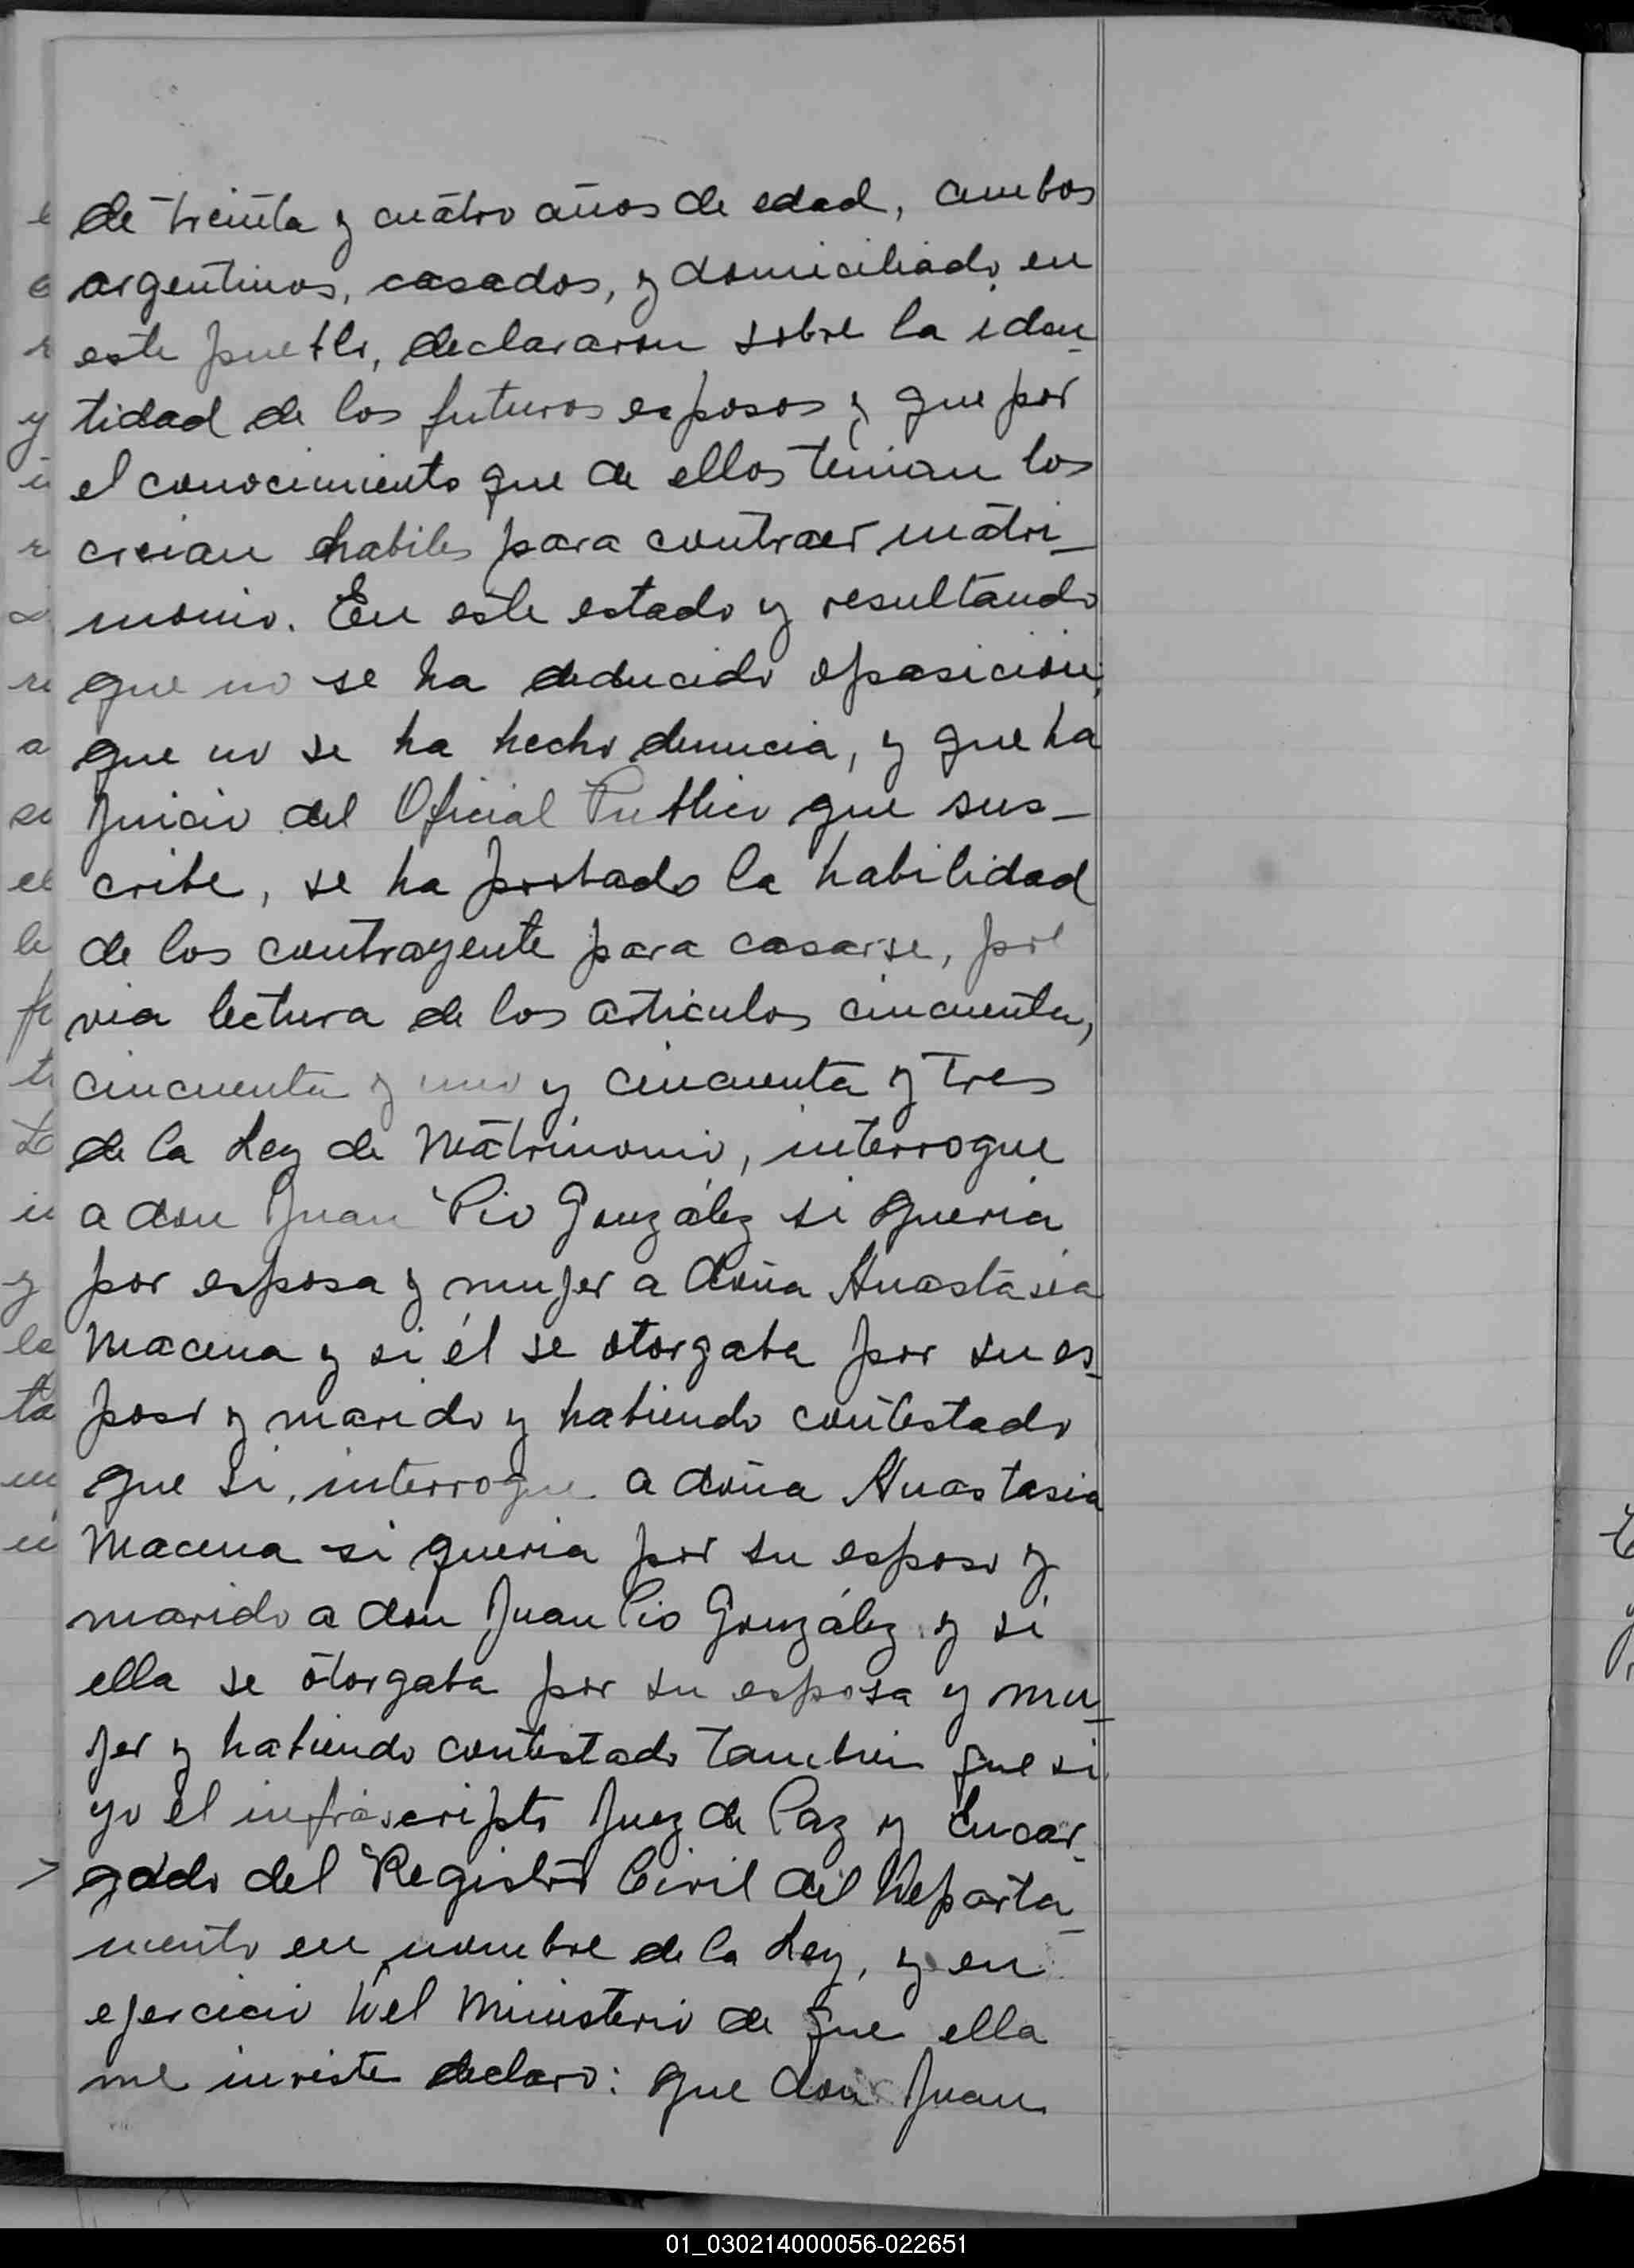 de treinta y cuatro años de edad, ambos
argentinos, casados, y domiciliado en
este pueblo, declararon sobre la iden_
tidad de los futuros esposos y que por
el conocimiento que de ellos tenian los
creian habiles para contraer matri_
monio. En este estado y resultando
que no se ha deducido oposicion,
que no se ha hecho denucia, y que ha
Juicio del Oficial Publico que sus_
cribe, se ha probado la habilidad
de los contrayente para casarse, pre
via lectura de los articulos cincuenta,
cincuenta y uno y cincuenta y tres
de la Ley de Matrimonio, interrogue
a don Juan Pio González si queria
por esposa y mujer a doña Anastasia
Macena y si él se otorgaba por su es_
poso y marido y habiendo contestado
que si, interrogue a doña Anastasia
Macena si queria por su esposo y
marido a don Juan Pio González y si
ella se otorgaba por su esposa y mu_
jer y habiendo contestado tambien que si
yo el infrascripto Juez de Paz y Encar_
gado del Registro Civil del Departa_
mento en nombre de la Ley, y en
ejercicio del Ministerio de que ella
me inviste declaro: que don Juan
01_030214000056-022651